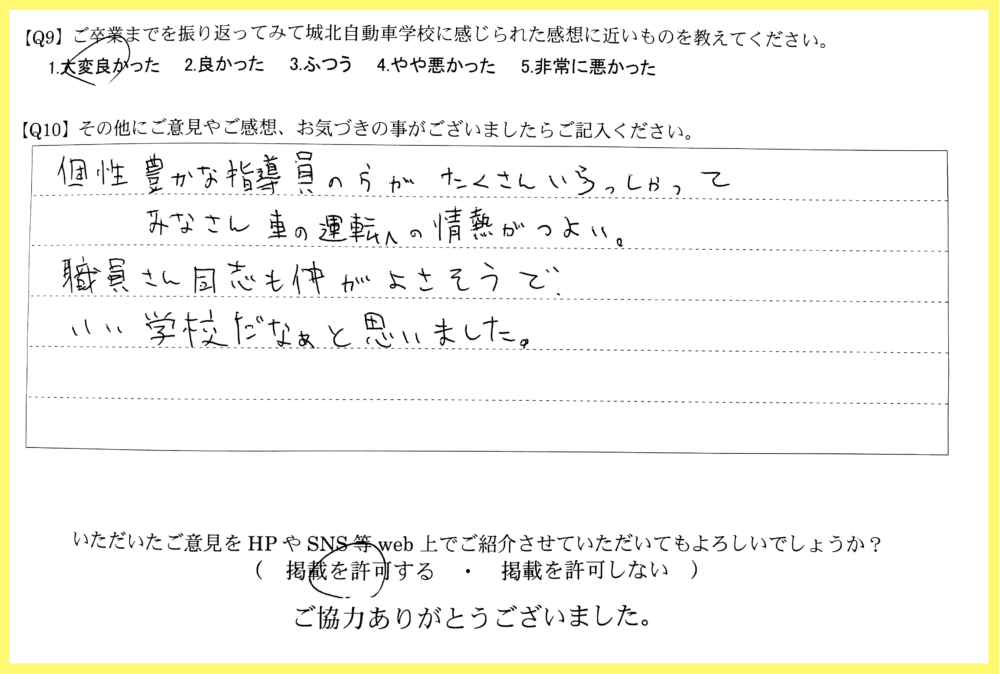 【Q9】ご卒業までを振り返ってみて城北自動車学校に感じられた感想に近いものを教えてください。
1.大変良かった 2.良かった 3.ふつう 4.やや悪かった 5.非常に悪かった
【Q10】その他にご意見やご感想、お気づきの事がございましたらご記入ください。
個性豊かな指導員の方がたくさんいらっしゃって
みなさん車の運転への情熱がつよい。
職員さん同志も仲がよさそうで、
いい学校だなぁと思いました。
いただいたご意見をHPやSNS等web上でご紹介させていただいてもよろしいでしょうか？
（ 掲載を許可する ・ 掲載を許可しない ）
ご協力ありがとうございました。